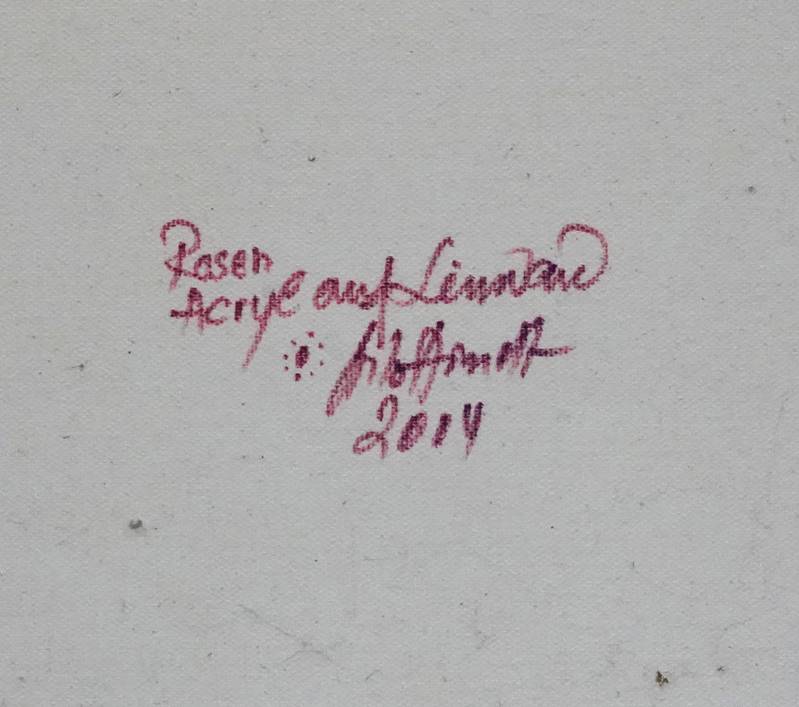 Rosen
Acryl auf Leinwand
2014